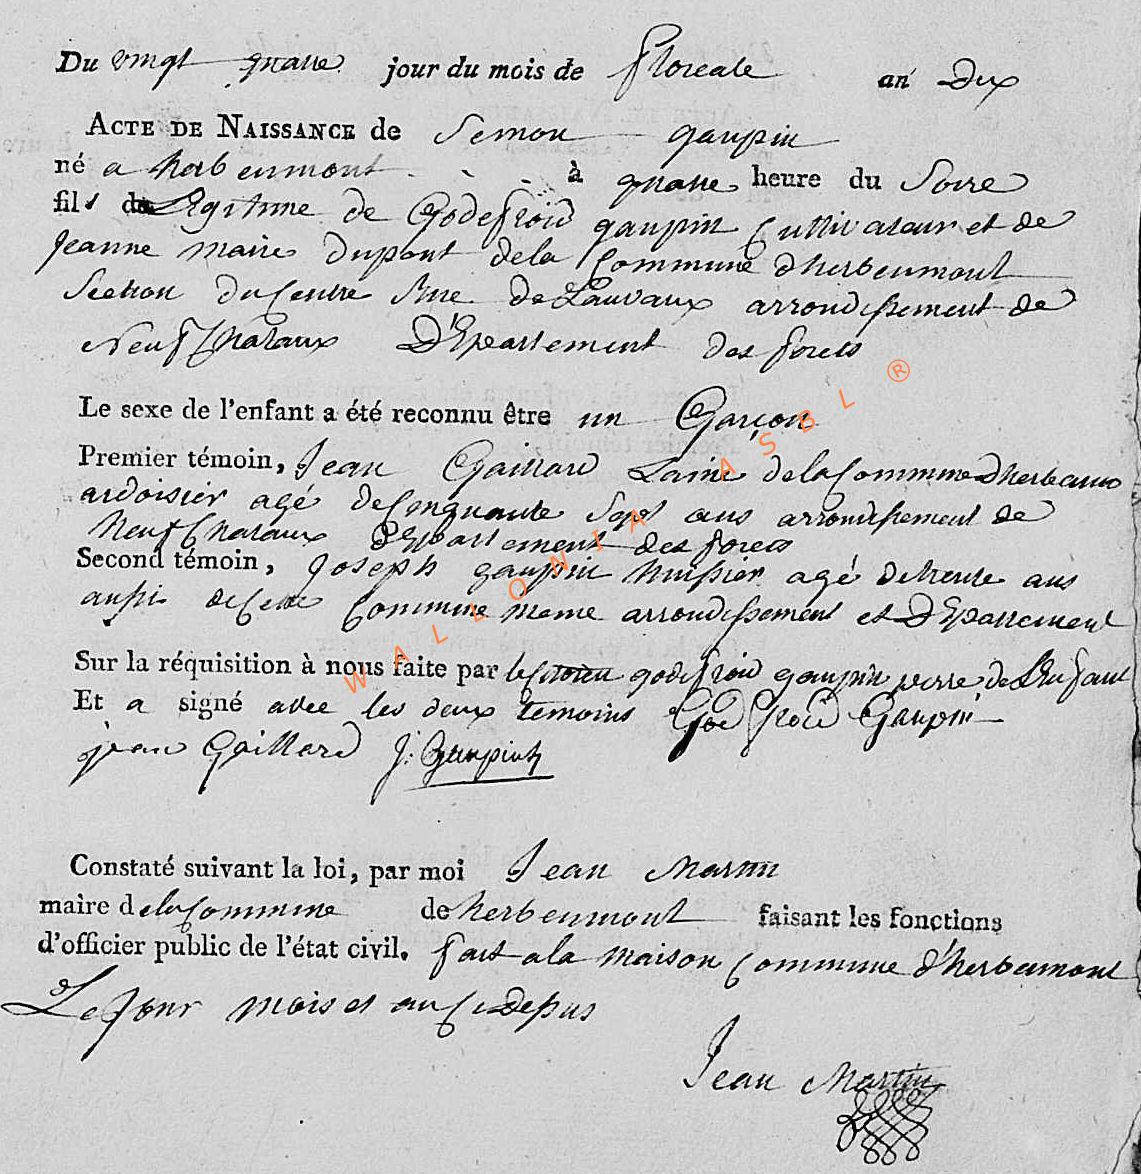 Du vingt quatre jour du mois de floreale an Dix
ACTE DE NAISSANCE de Semon gaupin
né a herbeumont à quatre heure du Soire
fils de Legitime de Godefroid gaupin Cultivateur et de
Jeanne Marie dupont dela Commune dherbeumont
Section du Centre de Lauvaux arrondissement de
Neufchataux D'Epartement des forets
Le sexe de l'enfant a été reconnu être un Garçon
Premier témoin, Jean Gaillard Lainé de la Commune dherbeumo
ardoisier agé de Cinquante Sept ans arrondissement de
Neufchataux D'Epartement des forets
Second témoin, Joseph gaupin huissier agé detrente ans
aussi de Cette Commune meme arrondissement et D'Epartement
Sur la réquisition à nous faite par le Citoien godefroid gaupin perre de L'Enfant
Et a signé avec les deux temoins Godfroid Gaupin
jean Gaillard J. Gaupin
Constaté suivant la loi, par moi Jean Martin
maire de la Commune de herbeumont faisant les fonctions
d'officier public de l'état civil. fait ala maison Commune d'herbeumont
Le Jour mois et an Cidepus
Jean Martin
WALLONIA ASBL ®